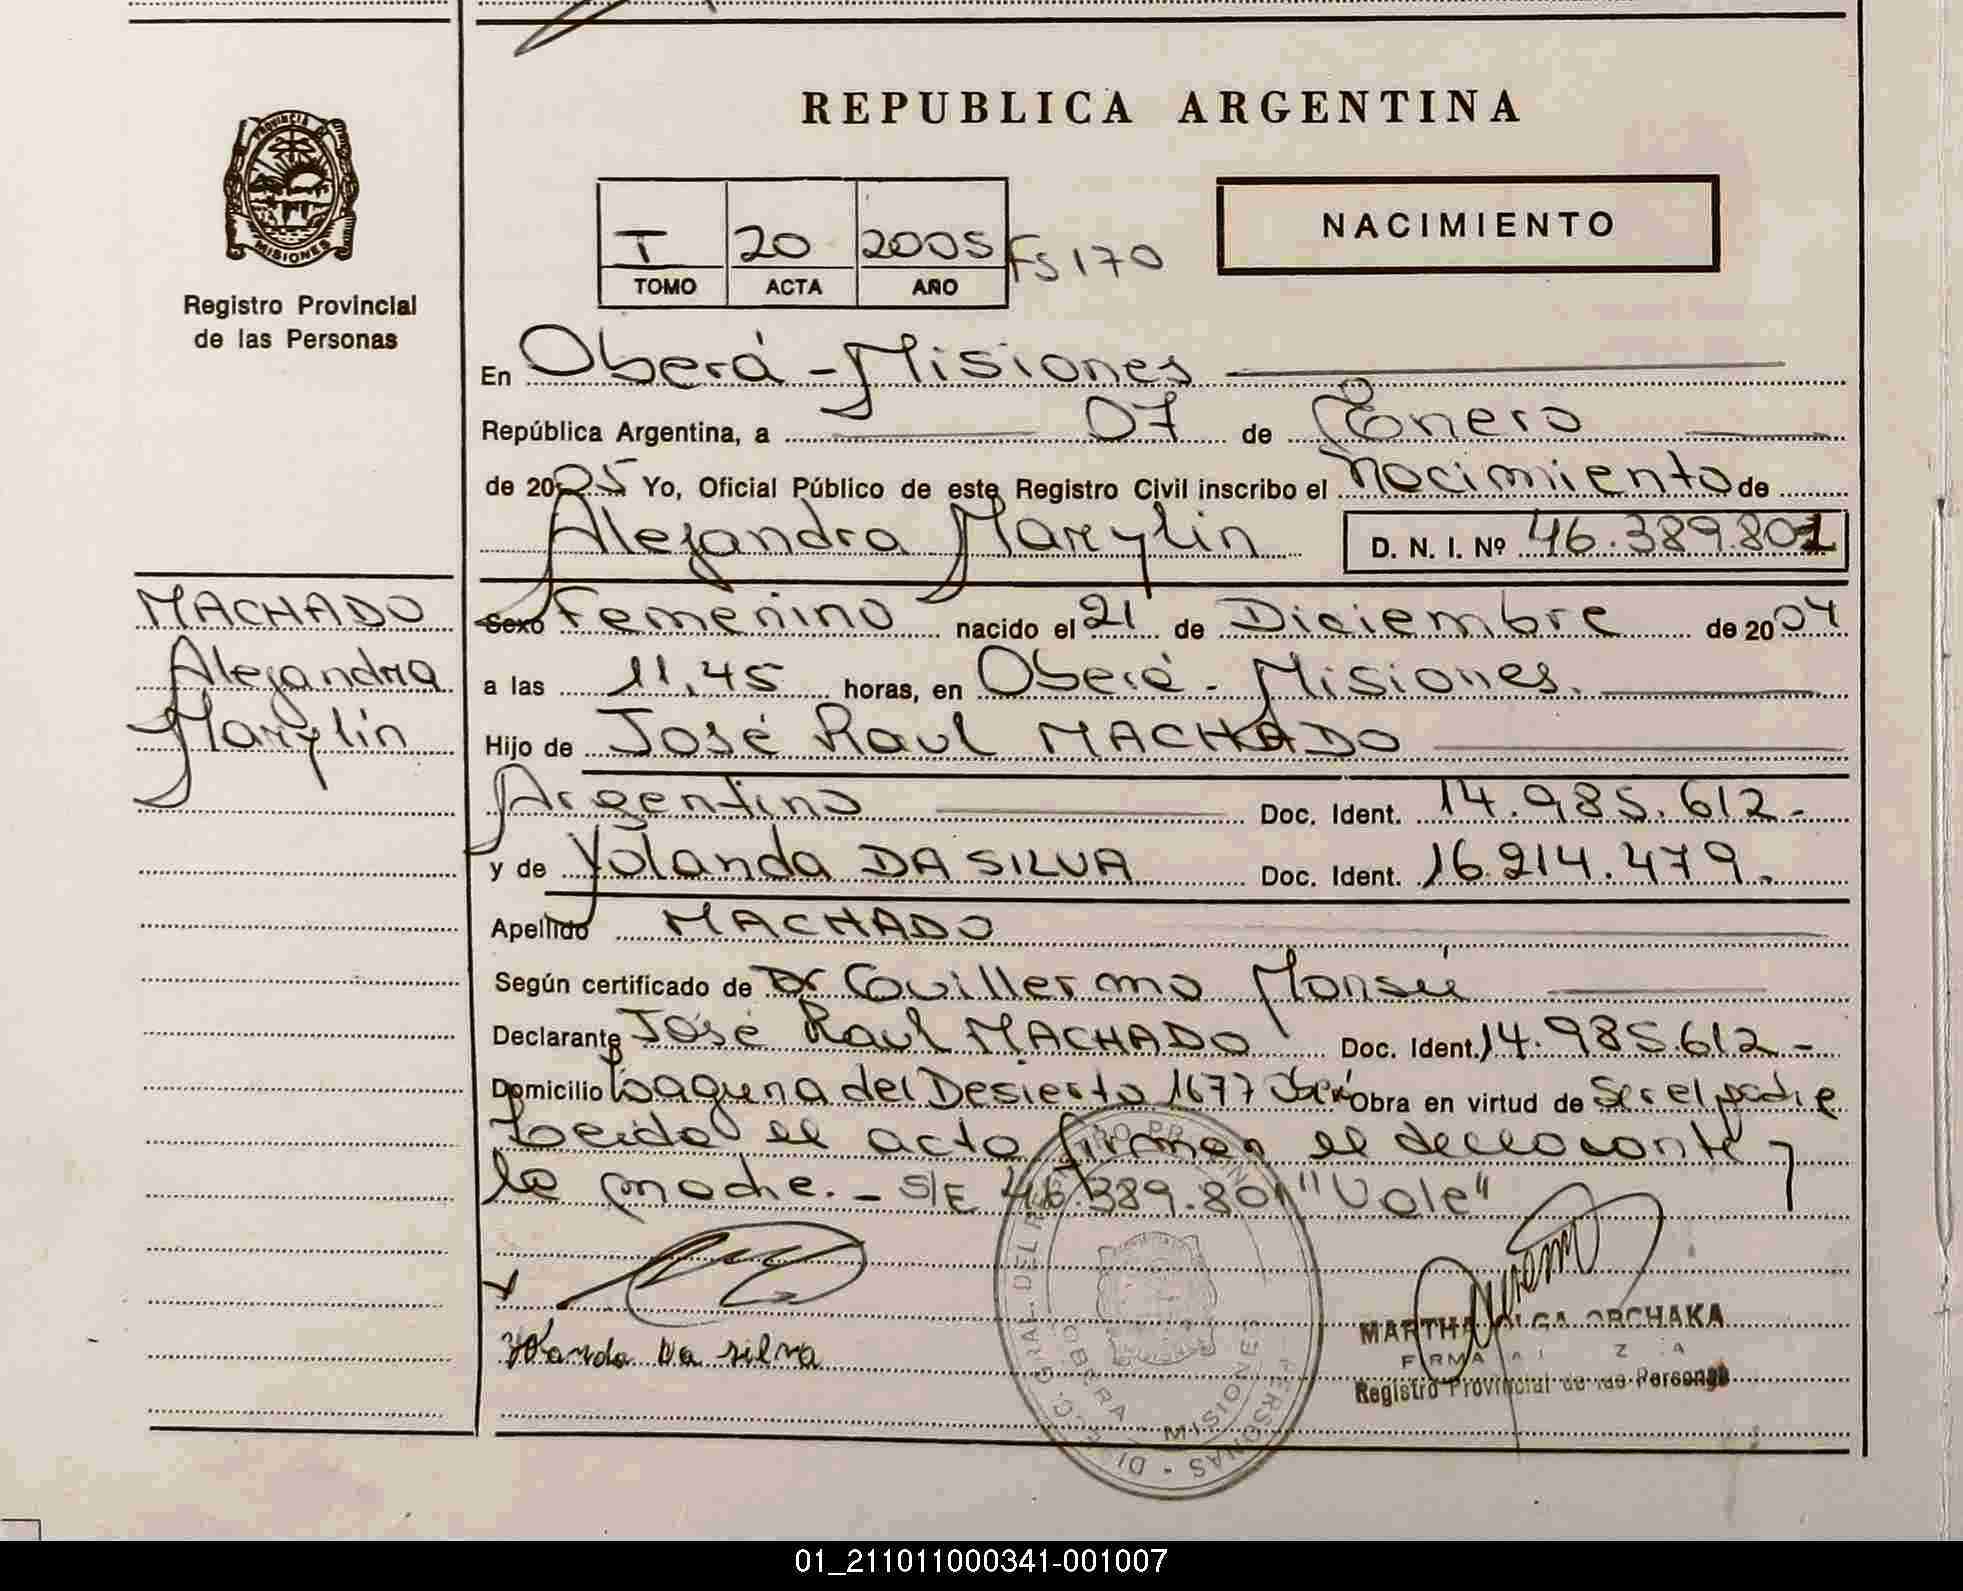 REPUBLICA ARGENTINA
PROVINCIA DE
MISIONES
Registro Provincial
de las Personas
I 20 2005 Fs 170
TOMO ACTA AÑO
NACIMIENTO
En Oberá - Misiones
República Argentina, a 07 de Enero
de 2005 Yo, Oficial Público de este Registro Civil inscribo el Nacimiento de
Alejandra Marylin D. N. I. Nº 46.389.801
MACHADO
Alejandra
Marylin
Sexo Femenino nacido el 21 de Diciembre de 2004
a las 11,45 horas, en Oberá - Misiones.
Hijo de José Raul MACHADO
Argentino Doc. Ident. 14.985.612.-
y de Yolanda DA SILVA Doc. Ident. 16.214.479.
Apellido MACHADO
Según certificado de Dr Guillermo
Declarante José Raul MACHADO Doc. Ident. 14.985.612.-
Domicilio Laguna del Desierto 1677 Oberá Obra en virtud de Ser el padre
Leido el acto firman el declarante y
la madre. - S/E 46.389.801 "Vale"
Yolanda Da silva
MARTHA OLGA ORCHAKA
FIRMA
Registro Provincial de las Personas
OBERA - MISIONES
01_211011000341-001007